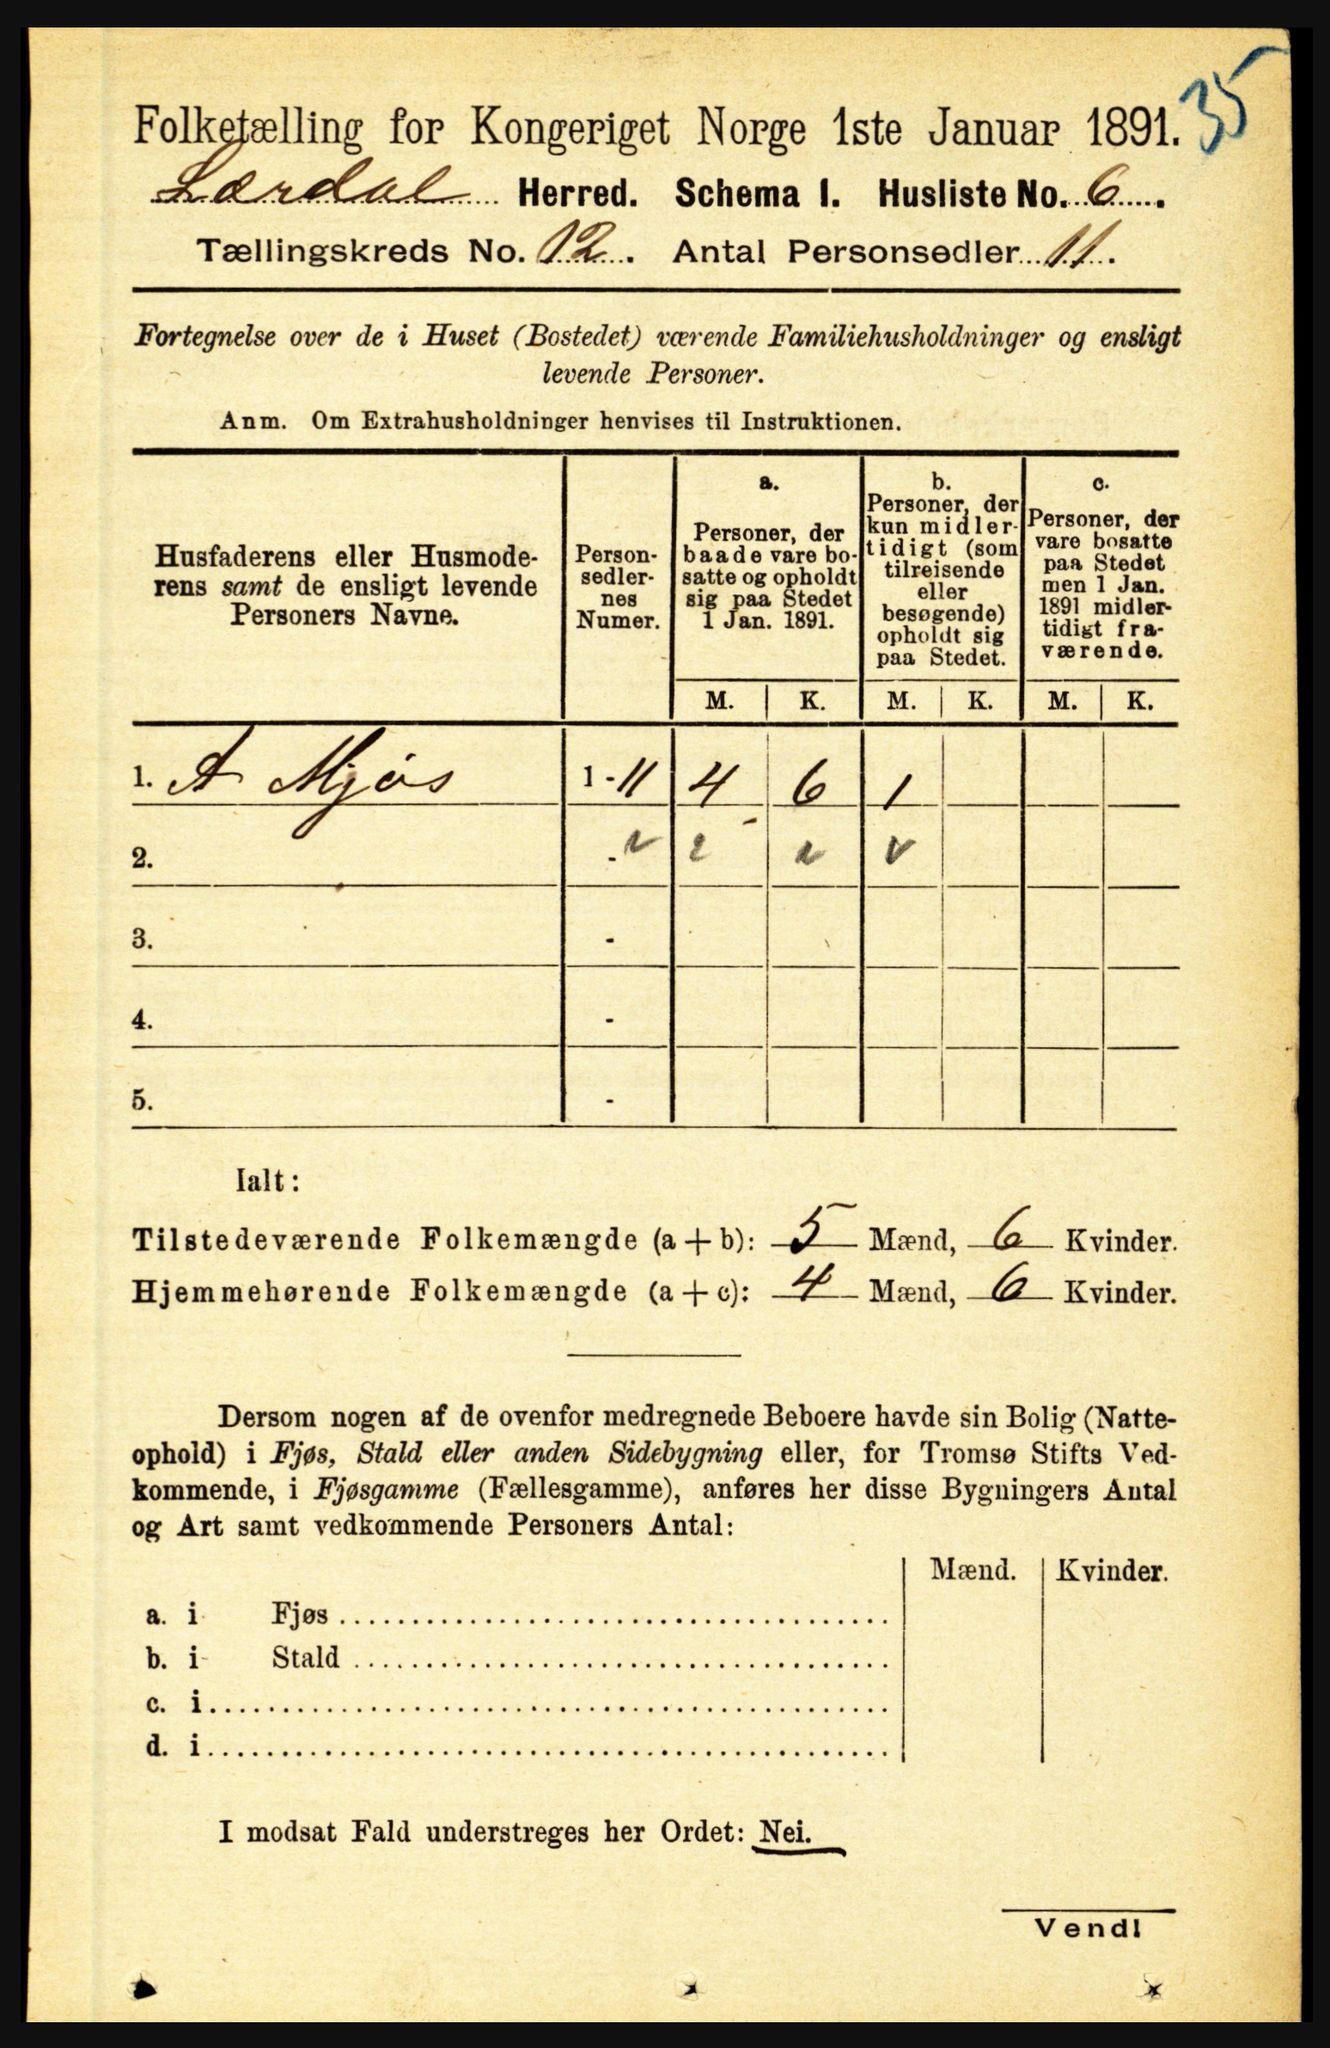 35
Folketælling for Kongeriget Norge 1ste Januar 1891.
Lærdal Herred. Schema I. Husliste No. 6.
Tællingskreds No. 12. Antal Personsedler 11.
Fortegnelse over de i Huset (Bostedet) værende Familiehusholdninger og ensligt
levende Personer.
Anm. Om Extrahusholdninger henvises til Instruktionen.
Husfaderens eller Husmode-
rens samt de ensligt levende
Personers Navne.
Person-
sedler-
nes
Numer.
a.
Personer, der
baade vare bo-
satte og opholdt
sig paa Stedet
1 Jan. 1891.
b.
Personer, der
kun midler-
tidigt (som
tilreisende
eller
besøgende)
opholdt sig
paa Stedet.
c.
Personer, der
vare bosatte
paa Stedet
men 1 Jan.
1891 midler-
tidigt fra-
værende.
M. K. M. K. M. K.
1. A Mjøs 1-11 4 6 1
2. -
3. -
4. -
5. -
Ialt:
Tilstedeværende Folkemængde (a+b): 5 Mænd, 6 Kvinder.
Hjemmehørende Folkemængde (a+c): 4 Mænd, 6 Kvinder.
Dersom nogen af de ovenfor medregnede Beboere havde sin Bolig (Natte-
ophold) i Fjøs, Stald eller anden Sidebygning eller, for Tromsø Stifts Ved-
kommende, i Fjøsgamme (Fællesgamme), anføres her disse Bygningers Antal
og Art samt vedkommende Personers Antal:
Mænd. Kvinder.
a. i Fjøs
b. i Stald
c. i
d. i
I modsat Fald understreges her Ordet: Nei.
Vend!